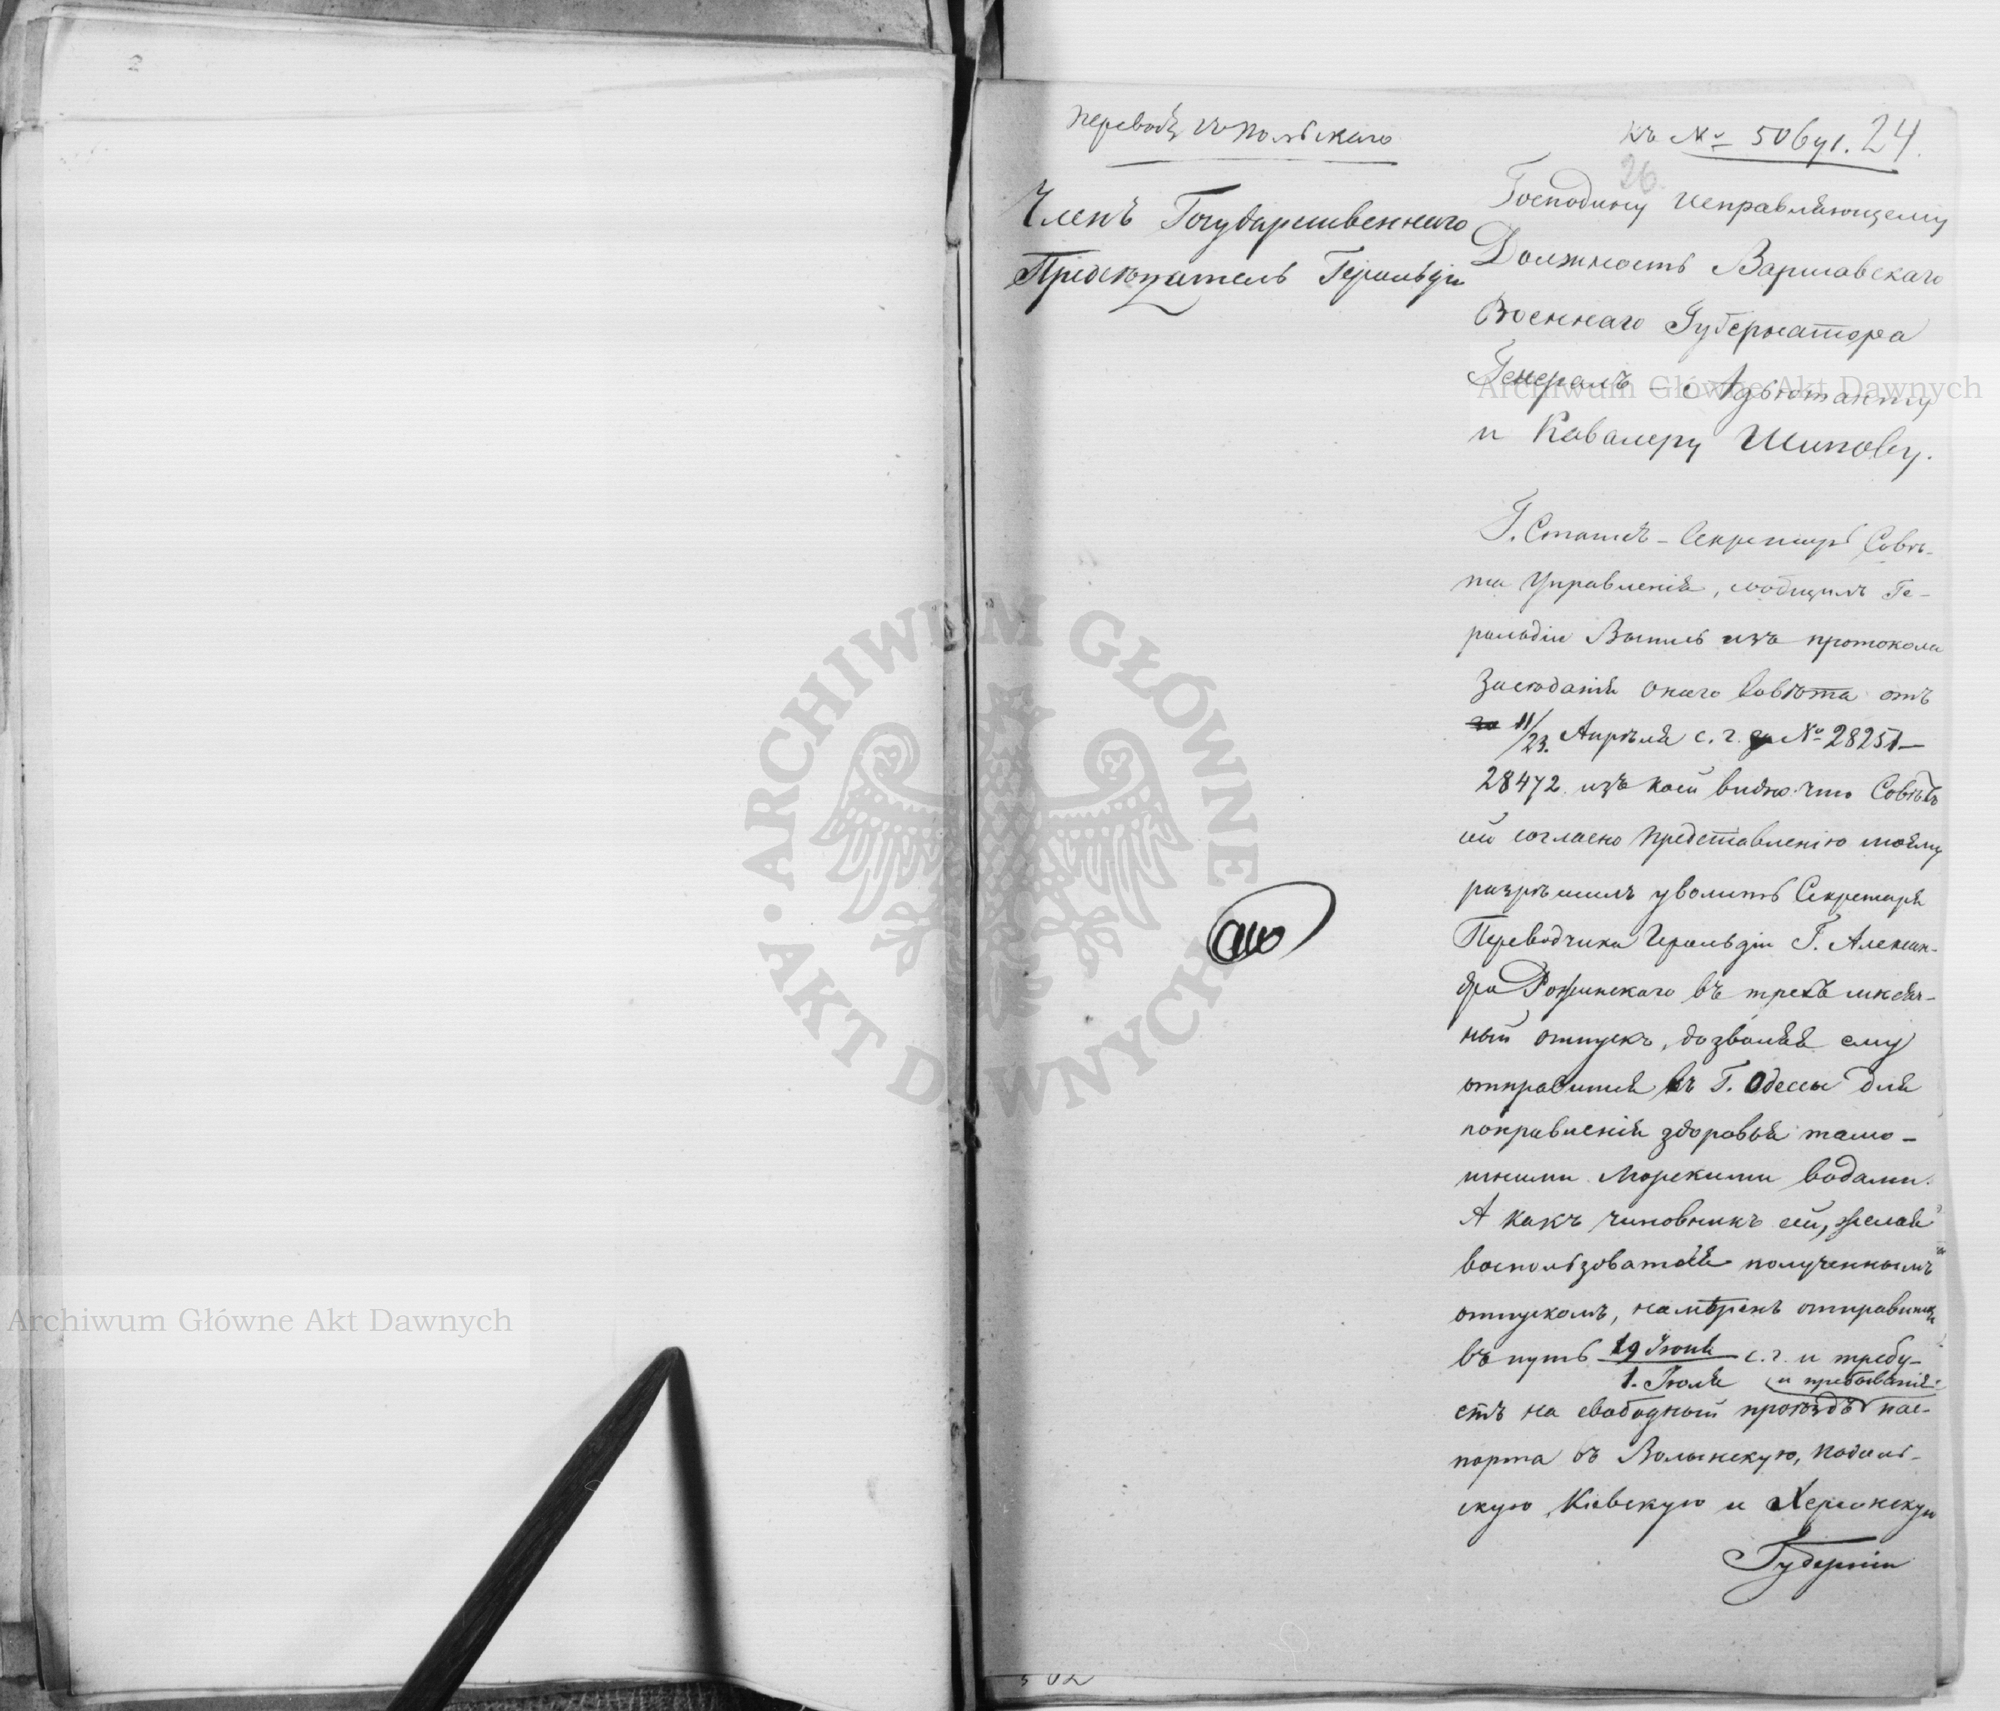 Переводъ съ Польскаго
къ № 506 у1. 24.
26.
Членъ Государственнаго
Председатель Герольдіи
Господину Исправляющему
Должность Варшавскаго
Военнаго Губернатора
Генералъ-Адъютанту
и Кавалеру Шипову.
Г. Статсъ-Секретарь Совѣ-
та Управленія, сообщилъ Ге-
рольдіи Выпись изъ протокола
Засѣданія онаго Совѣта отъ
11/23. Апрѣля с. г. № 28251-
28472 изъ коей видно что Совѣтъ
сей согласно представленію моему
разрѣшилъ уволить Секретаря
Переводчика Герольдіи Г. Алексан-
дра въ трехъ мѣсяч-
ный отпускъ, дозволяя ему
отправится въ Г. Одессы для
поправленія здоровья тамо-
шними Морскими водами.
А какъ чиновникъ сей, желая
воспользоватся полученнымъ
отпускомъ, намѣренъ отправится
въ путь 19 Іюня с. г. и требу-
1. Іюля и пребываніе
етъ на свободный проѣздъ пас-
порта въ Волынскую, Подоль-
скую, Кіевскую и Херсонскую
Губерніи
502
Archiwum Główne Akt Dawnych
Archiwum Główne Akt Dawnych
ARCHIWUM GŁÓWNE
AKT DAWNYCH